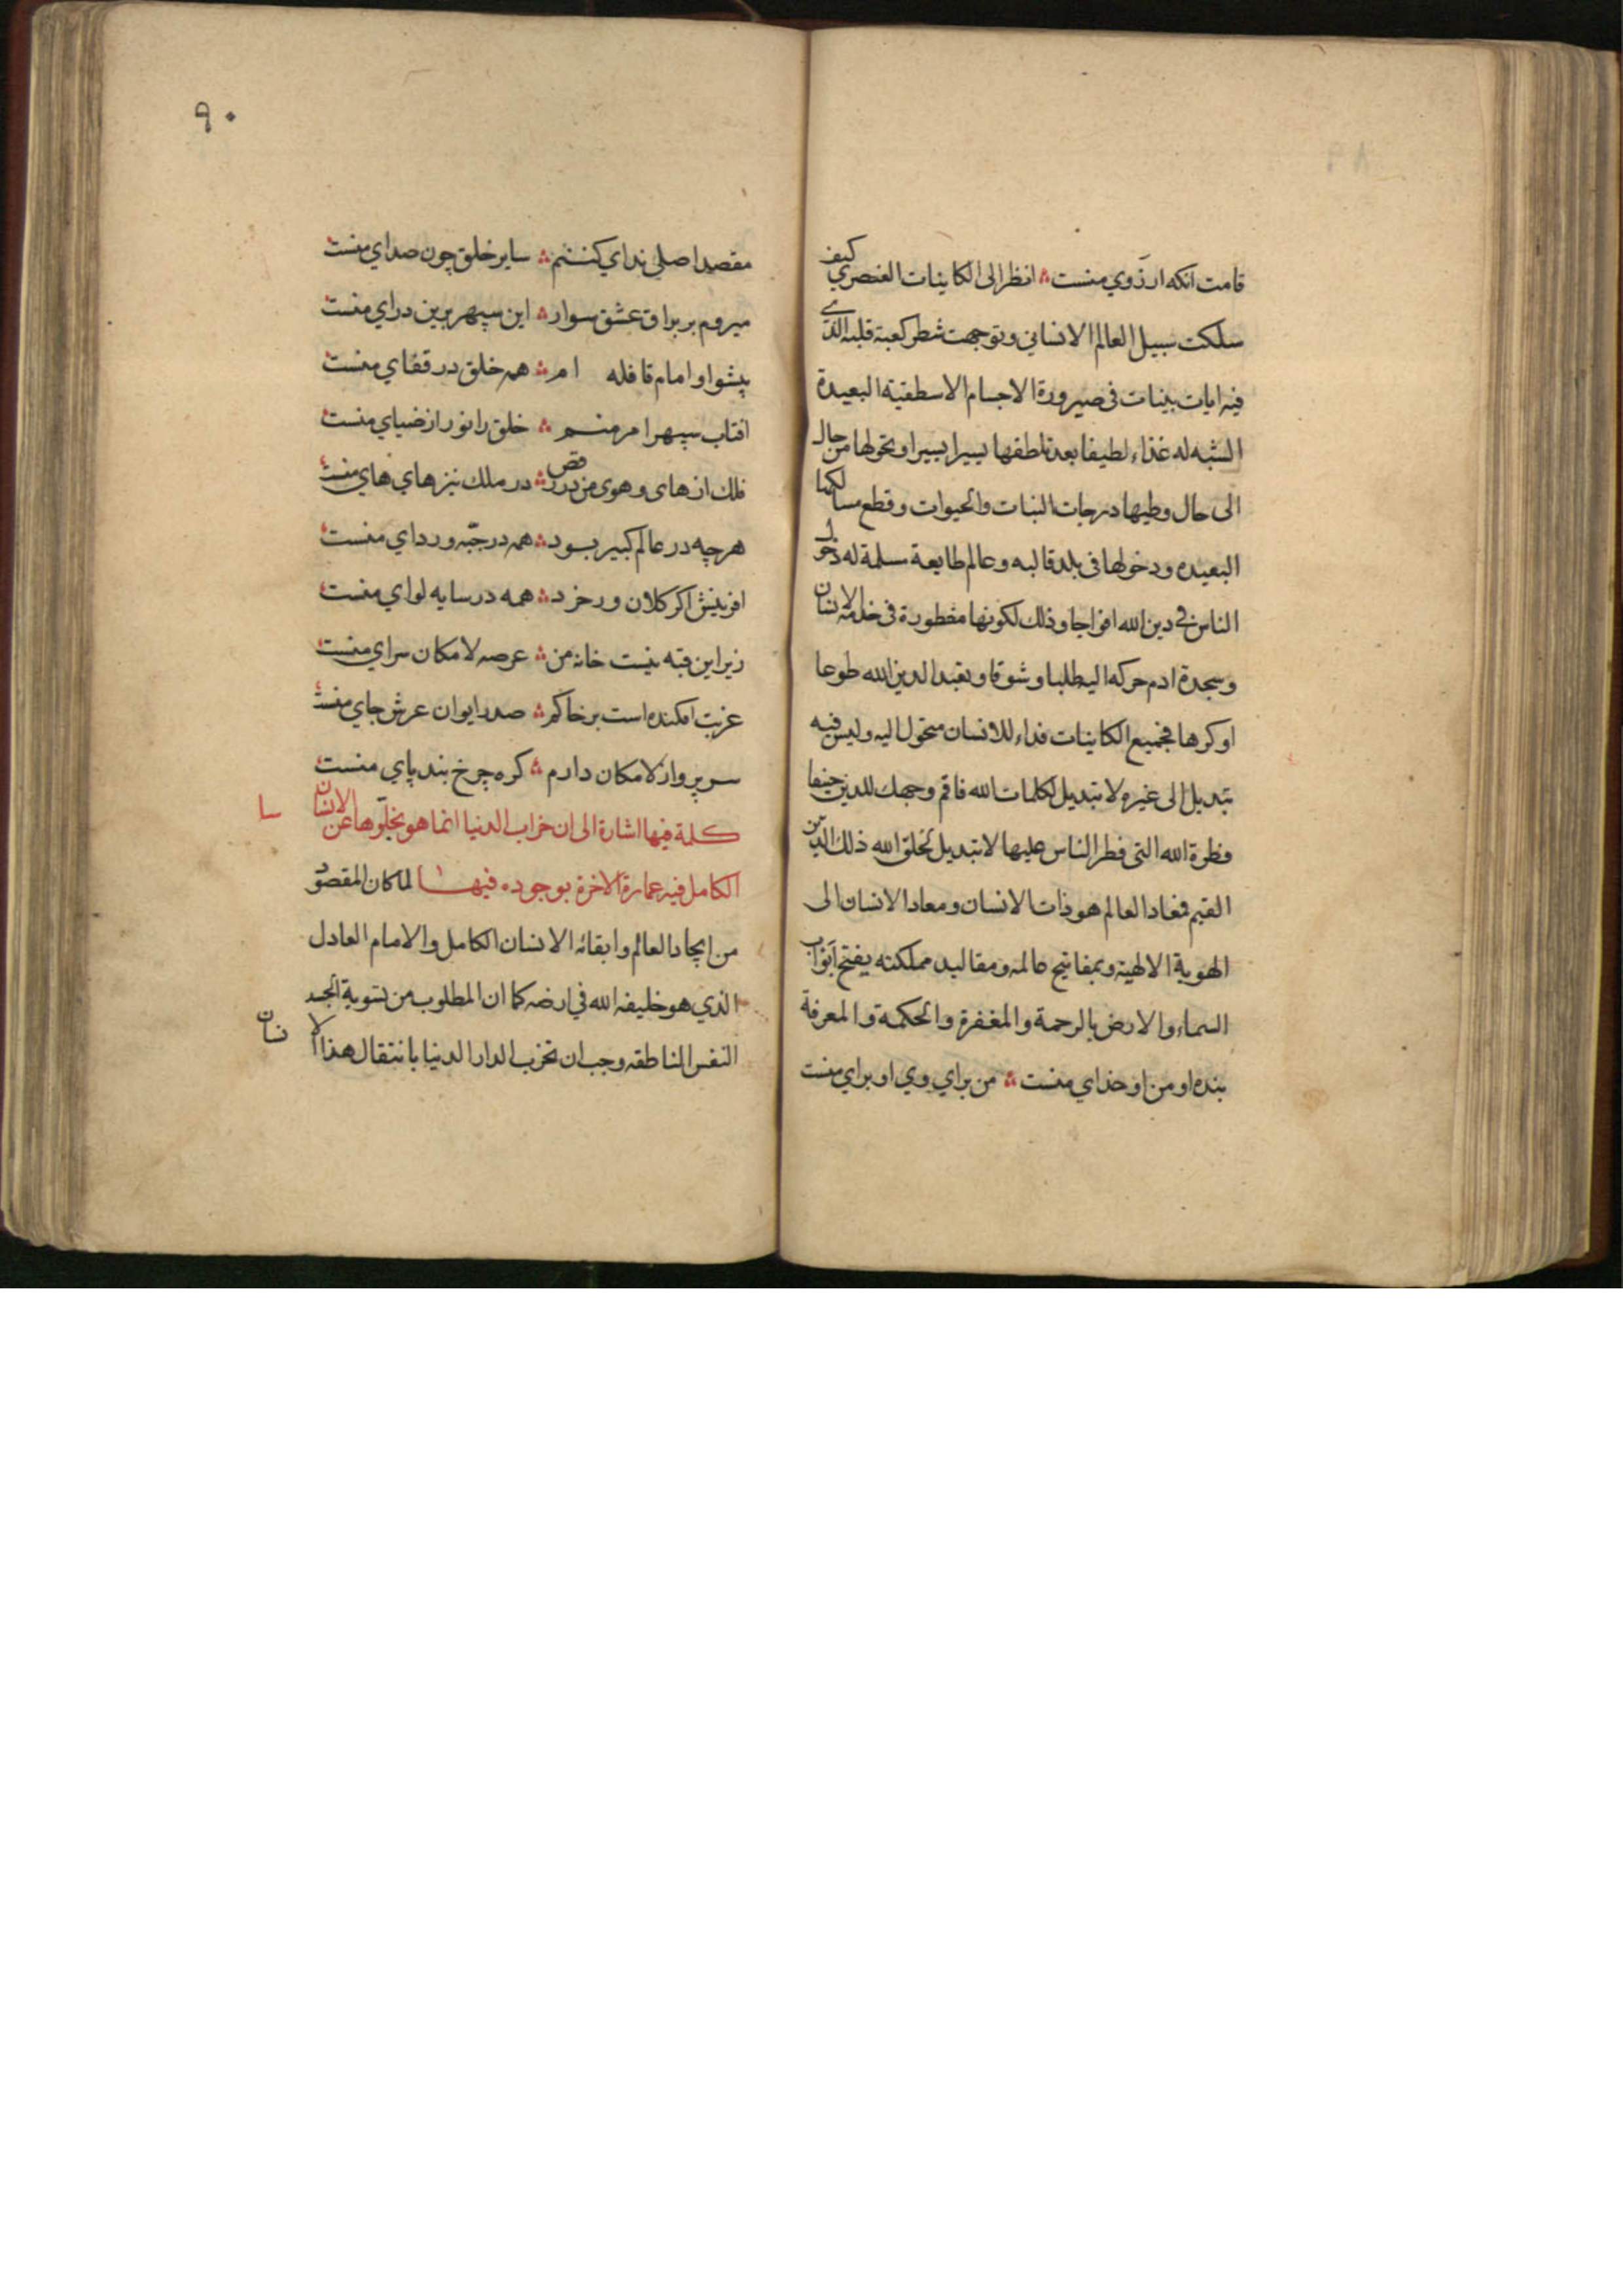 قامت انکه ارزوي منست ۞ انظر الی الکاینات العنصري کیف
سلکت سبیل العالم الانساني وتوجهت شطر کعبة قلبه الذي
فیه ایات بینات في صیرورة الاجسام الاسطقسیة البعیدة
الشبه له غذاء لطیفا بعد تلطفها یسیرا یسیرا وتحولها من حال
الی حال وطیها درجات النبات والحیوات وقطع مسالکها
البعیده ودخولها فی بلد قالبه وعالم طایعة سلمة له دخول
الناس في دین الله افواجا وذلك لکونها مفطورة فی خدمة الانسان
وسجدة ادم حرکه الیه طلبا وشوقا وتعبدا لدین الله طوعا
اوکرها فجمیع الکاینات فداء للانسان متحول الیه ولیس فیه
تبدیل الی غیره لا تبدیل لکلمات الله فاقم وجهك للدین حنیفا
فطرة الله التی فطر الناس علیها لا تبدیل لخلق الله ذلك الدین
القیم فمعاد العالم هو ذات الانسان ومعاد الانسان الی
الهویة الالهیة وبمفاتیح عالمه ومقالید مملکته یفتح ابواب
السماء والارض بالرحمة والمغفرة والحکمة والمعرفة
بنده او من او خدای منست ۞ من برای وي او برای منست
۹۰
مقصد اصلی ندای کننم ۞ سایر خلق چون صدای منست
میروم بر براق عشق سوار ۞ این سپهر برین درای منست
پیشوا و امام قافله ام ۞ همه خلق در قفای منست
افتاب سپهر امر منم ۞ خلق را نور از ضیای منست
فلك از های و هوی من در رقص ۞ در ملك نیز های های منست
هرچه در عالم کبیر بود ۞ همه در جبّه و ردای منست
افرینش اکر کلان ور خرد ۞ همه در سایه لوای منست
زیر این قبه نیست خانه من ۞ عرصه لامکان سرای منست
غربت افکنده است بر خاکم ۞ صدر ایوان عرش جای منست
سر پرواز لامکان دارم ۞ کره چرخ بند پای منست
کلمة فیها اشارة الی ان خراب الدنیا انما هو بخلوّها عن الانسان
الکامل فیه عمارة الاخرة بوجوده فیها لما کان المقصود
من ایجاد العالم وابقائه الانسان الکامل والامام العادل
الذي هو خلیفة الله في ارضه کما ان المطلوب من تسویة الجسد
النفس الناطقه وجب ان تخرب الدار الدنیا بانتقال هذا الا نسان